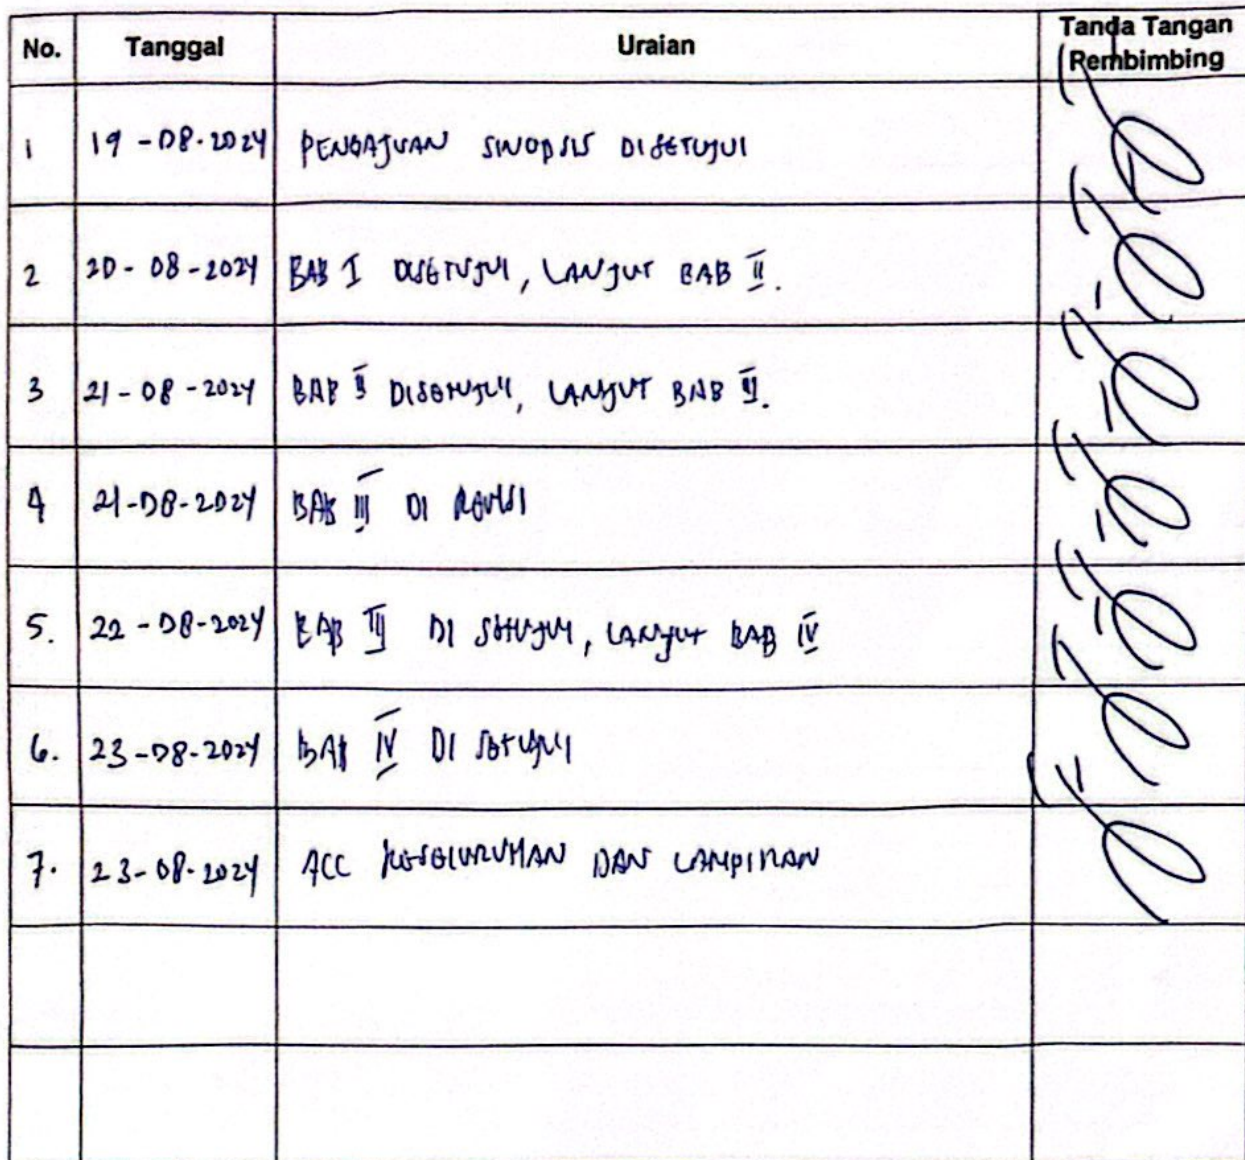 No. Tanggal Uraian Tanda Tangan
Pembimbing
1 19-08-2024 PENGAJUAN SINOPSIS DISETUJUI
2 20-08-2024 BAB I DISETUJUI, LANJUT BAB II.
3 21-08-2024 BAB II DISETUJUI, LANJUT BAB III.
4 21-08-2024 BAB III DI REVISI
5. 22-08-2024 BAB III DI SETUJUI, LANJUT BAB IV
6. 23-08-2024 BAB IV DI SETUJUI
7. 23-08-2024 ACC KESELURUHAN DAN LAMPIRAN